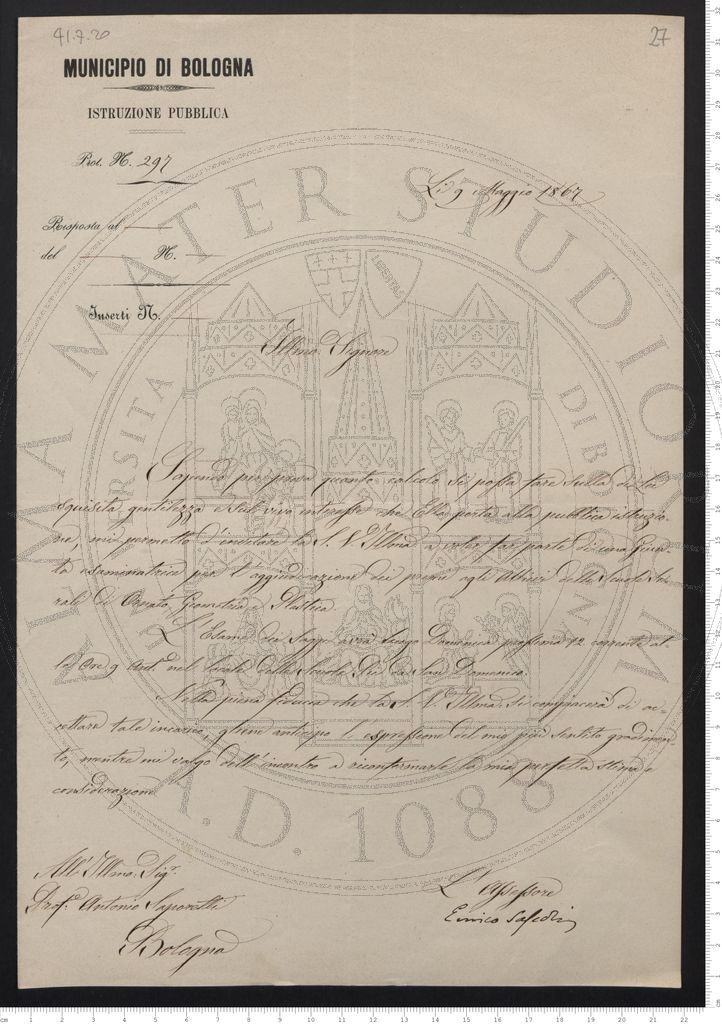 41.7.20
27
MUNICIPIO DI BOLOGNA
ISTRUZIONE PUBBLICA
Prot. N. 297
Li 9 Maggio 1867
Risposta al
del N.
Inserti N.
Illmo. Signore
Sapendo per prova quanto calcolo si possa fare sulla di Lei
squisita gentilezza e sul vivo interesse che Ella porta alla pubblica istruzio-
ne, mi permetto d'invitare la S. V. Illma a voler far parte di una Giun-
ta esaminatrice per l'aggiudicazione dei premi agli Allievi delle Scuole Se-
rali di Ornato, Geometria e Plastica.
L'Esame dei Saggi avrà luogo Domenica prossima 12 corrente al-
le Ore 9 Ant. nel locale delle Scuole Pie da San Domenico.
Nella piena fiducia che la S. V. Illma. si compiacerà di ac-
cettare tale incarico, gliene anticipo l'espressione del mio più sentito gradimen-
to, mentre mi valgo dell'incontro a riconfermarle la mia perfetta stima e
considerazione
All'Illmo. Sigr.
Prof. Antonio Saporetti
Bologna
L'Assessore
Enrico
ALMA MATER STUDIORUM
UNIVERSITÀ DI BOLOGNA
LIBERTAS
A.D. 1088